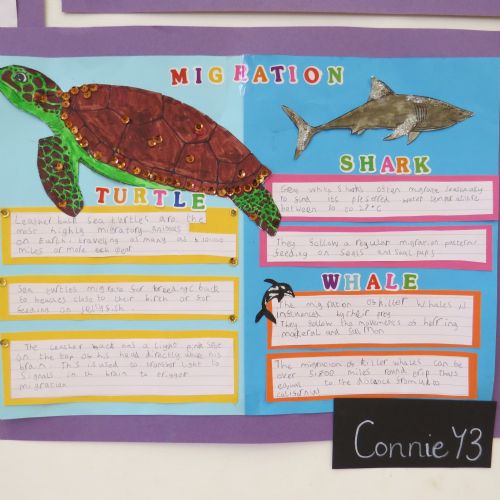 MIGRATION
TURTLE
Leather back Sea turtles are the
most highly migratory animals
on Earth, traveling as many as 10000
miles or more each year.
Sea turtles migrate for breeding, back
to beaches close to their birth or for
feeding on jellyfish.
The leather back has a light pink spot
on the top of his head directly above his
brain. This is used to transfer light to
signals in the brain to trigger
migration
SHARK
Great white sharks often migrate seasonally
to find its preferred water temperature
between to 27°C
They follow a regular migration patern
feeding on seals and seal pups
WHALE
The migration of killer whales is
influenced by their prey
They follow the movements of herring
mackeral and salmon
The migration of killer whales can be
over miles round trip thats
equal to the distance from uk to
california
Connie Y3